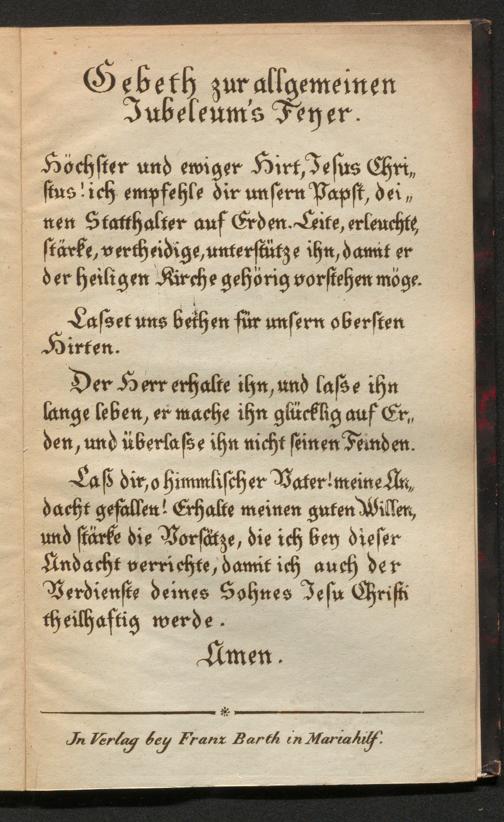 Gebeth zur allgemeinen
Jubeleum's Feyer.
Höchster und ewiger Hirt, Jesus Chri„
stus! ich empfehle dir unsern Papst, dei„
nen Statthalter auf Erden. Leite, erleuchte,
stärke, vertheidige, unterstütze ihn, damit er
der heiligen Kirche gehörig vorstehen möge.
Lasset uns bethen für unsern obersten
Hirten.
Der Herr erhalte ihn, und lasse ihn
lange leben, er mache ihn glücklig auf Er„
den, und überlasse ihn nicht seinen Feinden.
Laß dir, o himmlischer Vater! meine An„
dacht gefallen! Erhalte meinen guten Willen,
und stärke die Vorsätze, die ich bey dieser
Andacht verrichte, damit ich auch der
Verdienste deines Sohnes Jesu Christi
theilhaftig werde.
Amen.
In Verlag bey Franz Barth in Mariahilf.